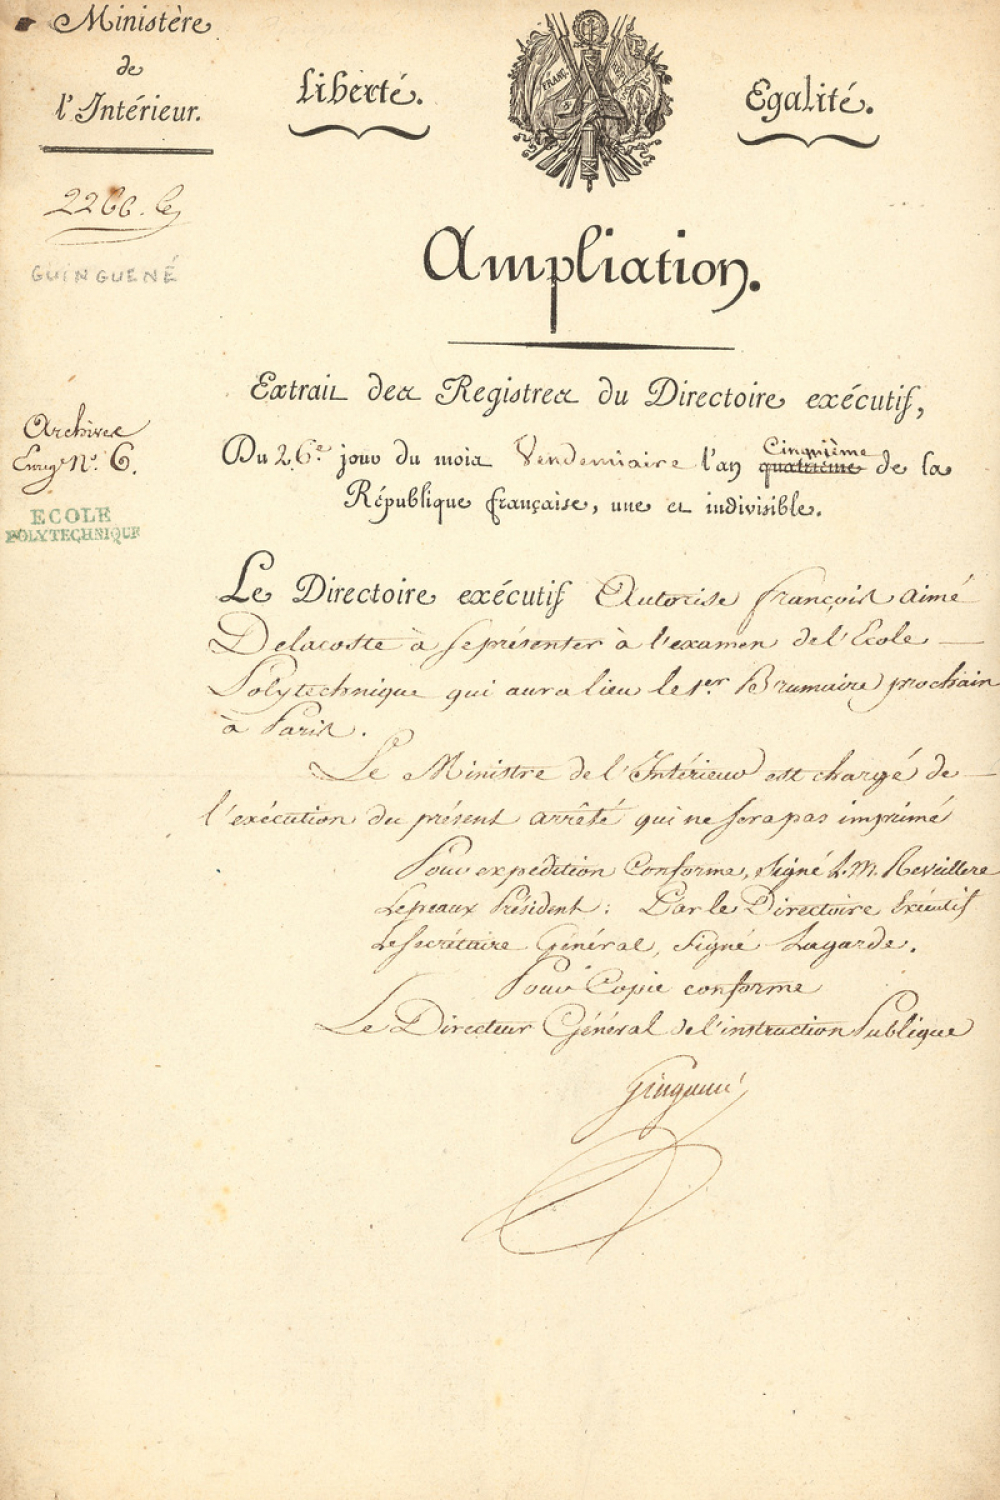 Ministère
de
l'Intérieur.
Liberté.
Egalité.
2266.
GUINGUENÉ
Ampliation.
Extrait des Registres du Directoire exécutif,
Archives
Enreg. N.º 6.
Du 26.e jour du mois Vendemiaire l'an quatrième Cinquième de la
République française, une et indivisible.
ECOLE
POLYTECHNIQUE
Le Directoire exécutif Autorise françois aimé
Delacoste à se présenter à l'examen de l'Ecole
Polytechnique qui aura lieu le 1.er Brumaire prochain
à Paris.
Le Ministre de l'Intérieur est chargé de
l'exécution du présent arrêté qui ne sera pas imprimé
Pour expédition Conforme, Signé L.M. Reveillere
Lepeaux Président : Par le Directoire Exécutif
Le Secrétaire Général, Signé Lagarde.
Pour Copie conforme
Le Directeur Général de l'instruction Publique
Ginguené